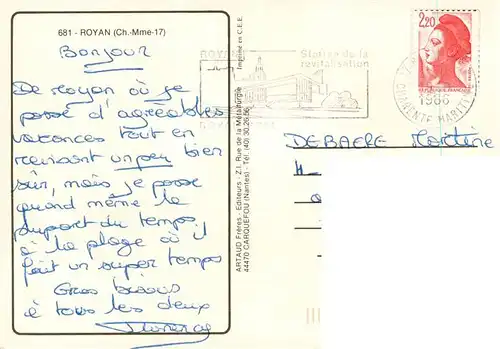 681 - ROYAN (Ch.-Mme-17)
Bonjour
De royan où je
passe d'agréables
vacances tout en
revisant un peu bien
sûr, mais je passe
quand même la
plupart du temps
à la plage où il
fait un super temps
Gros bisous
à tous les deux
ARTAUD Frères - Editeurs - Z.I. Rue de la Métallurgie
44470 CARQUEFOU (Nantes) - Tél. (40) 30.26.56
Imprimé en C.E.E.
ROYAN
Station de la
revitalisation
2,20
REPUBLIQUE FRANCAISE
1986
CHARENTE MARITIME
DEBAERE Martine